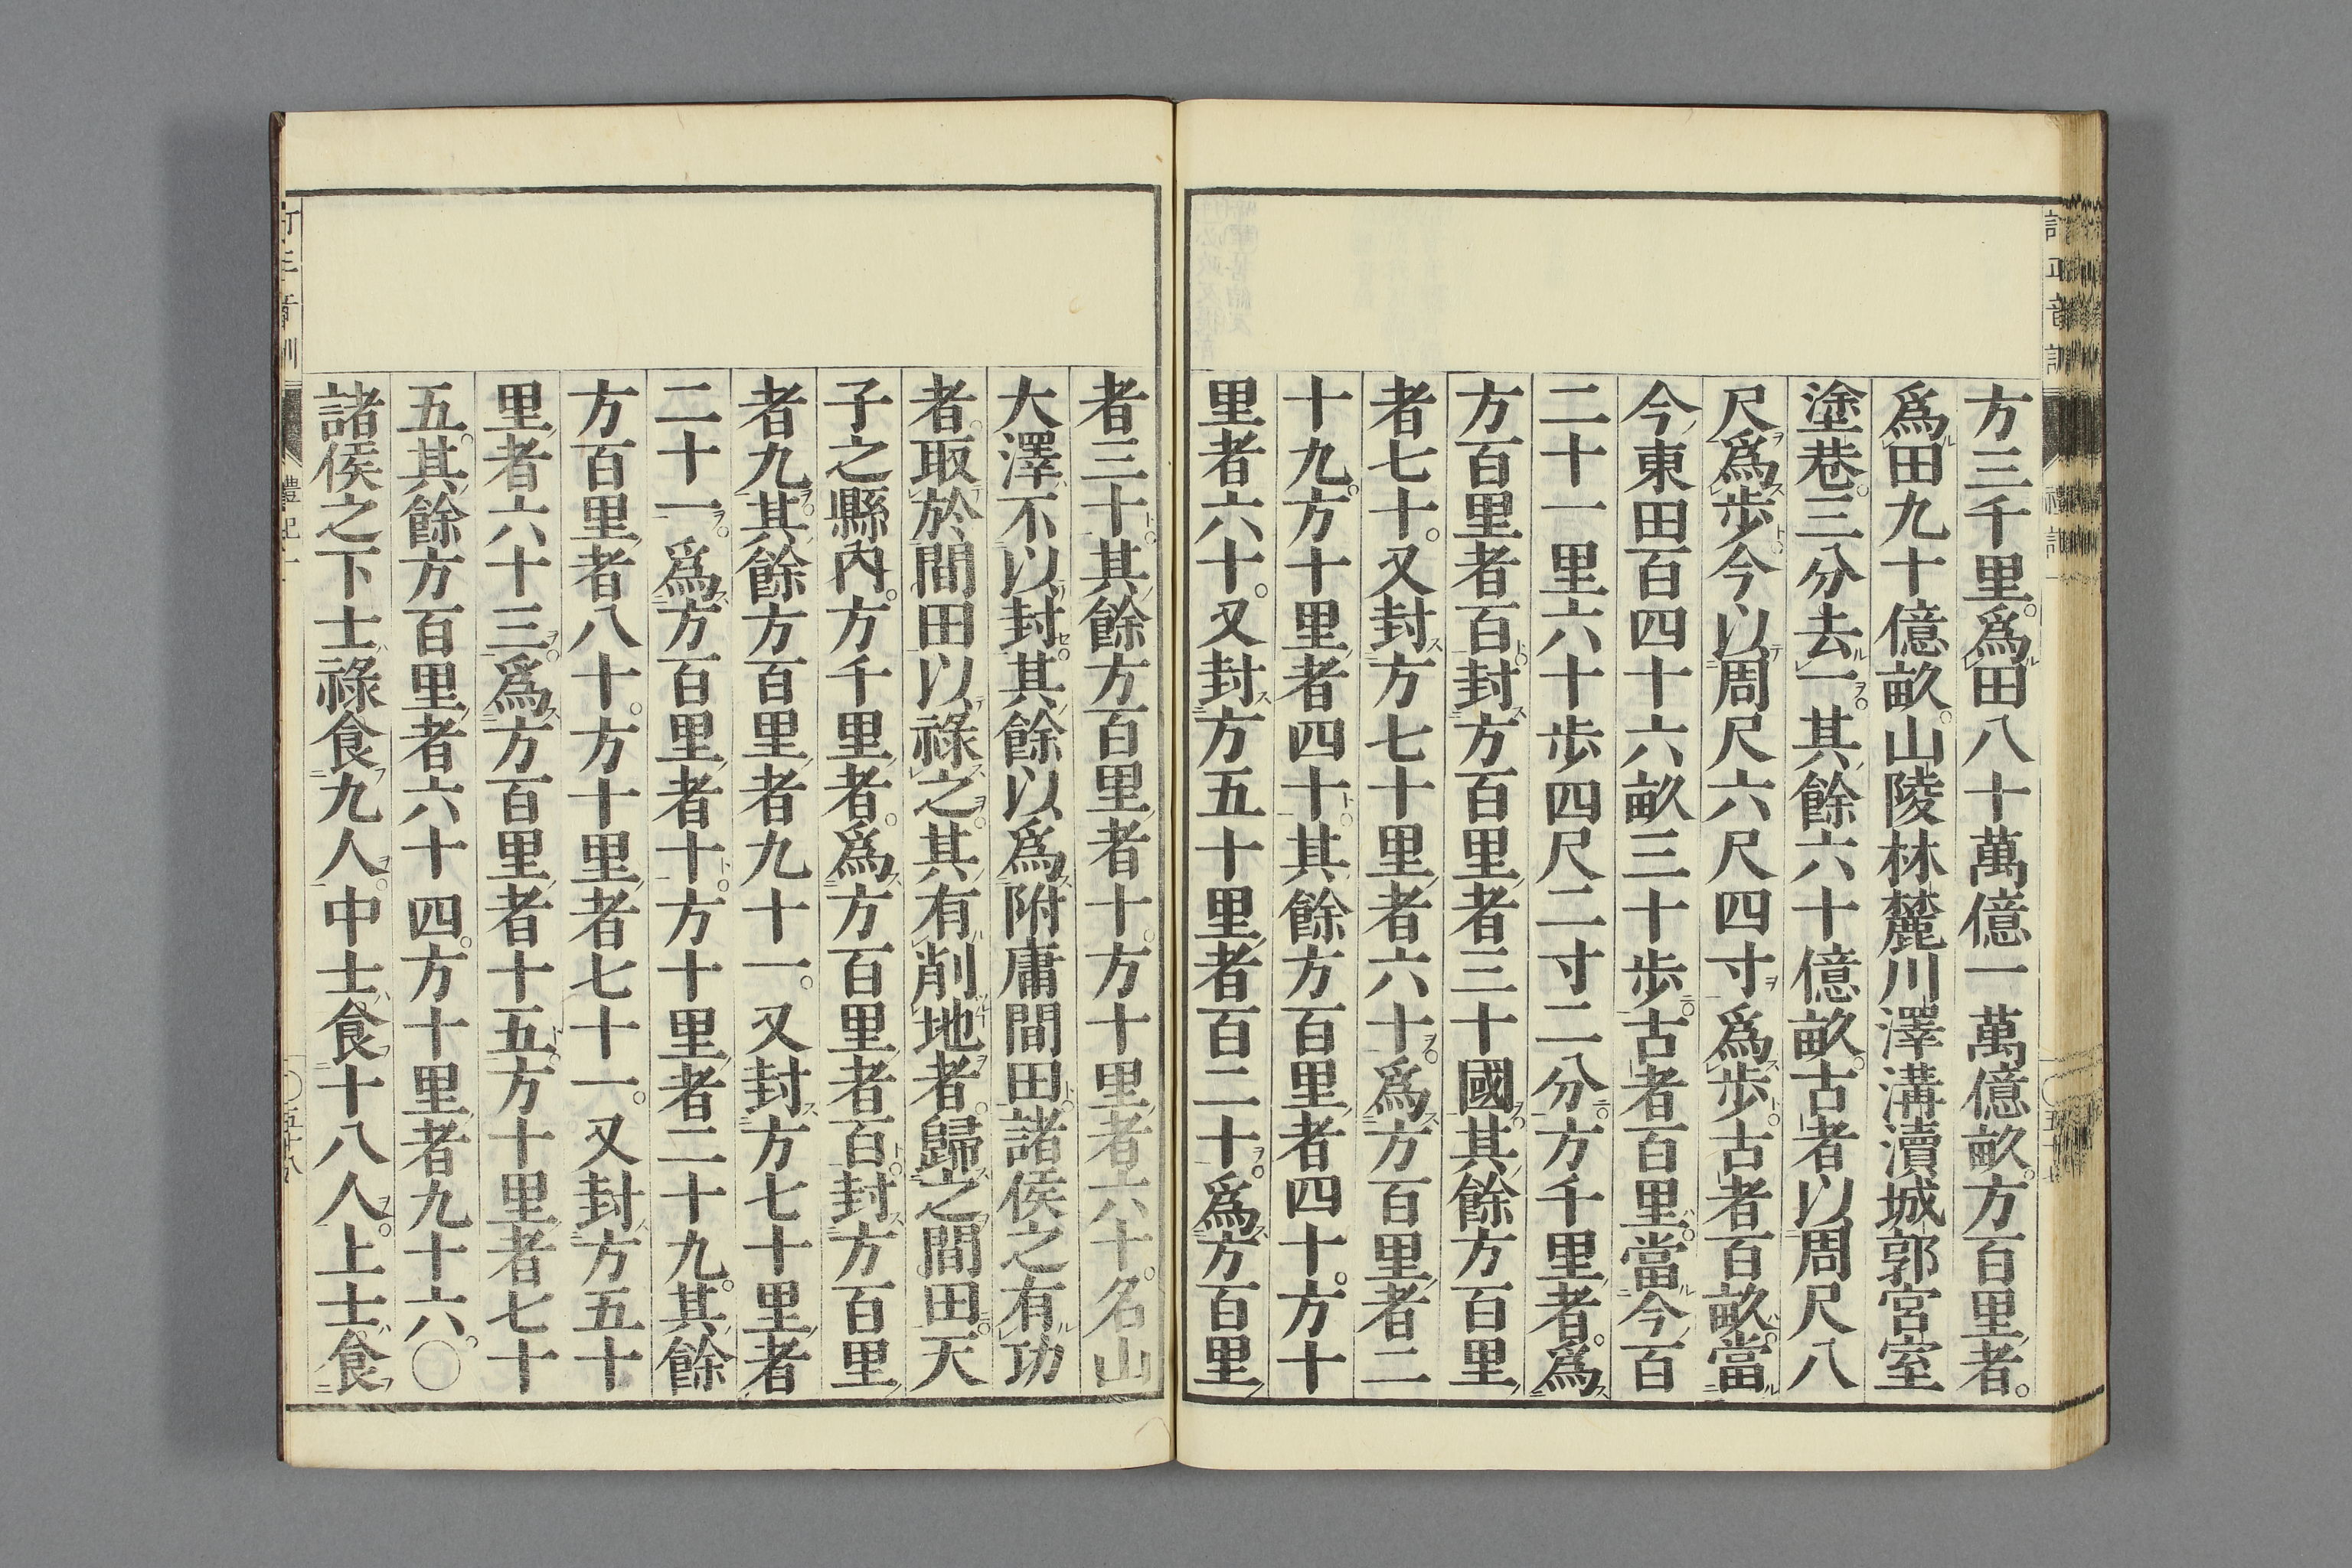 方三千里。爲田八十萬億一萬億畝。方百里者。
爲田九十億畝。山陵林麓川澤溝瀆城郭宮室
塗巷。三分去一。其餘六十億畝。古者以周尺八
尺爲步。今以周尺六尺四寸爲步。古者百畝。當
今東田百四十六畝三十步。古者百里。當今百
二十一里六十步四尺二寸二分。方千里者。爲
方百里者百。封方百里者三十國。其餘方百里
者七十。又封方七十里者六十。爲方百里者二
十九。方十里者四十。其餘方百里者四十。方十
里者六十。又封方五十里者百二十。爲方百里
者三十。其餘方百里者十。方十里者六十。名山
大澤不以封。其餘以爲附庸間田。諸侯之有功
者。取於間田以祿之。其有削地者。歸之間田。天
子之縣內。方千里者。爲方百里者百。封方百里
者九。其餘方百里者九十一。又封方七十里者
二十一。爲方百里者十。方十里者二十九。其餘
方百里者八十。方十里者七十一。又封方五十
里者六十三。爲方百里者十五。方十里者七十
五。其餘方百里者六十四。方十里者九十六。〇
諸侯之下士。祿食九人。中士食十八人。上士食
禮記一
〇五十八